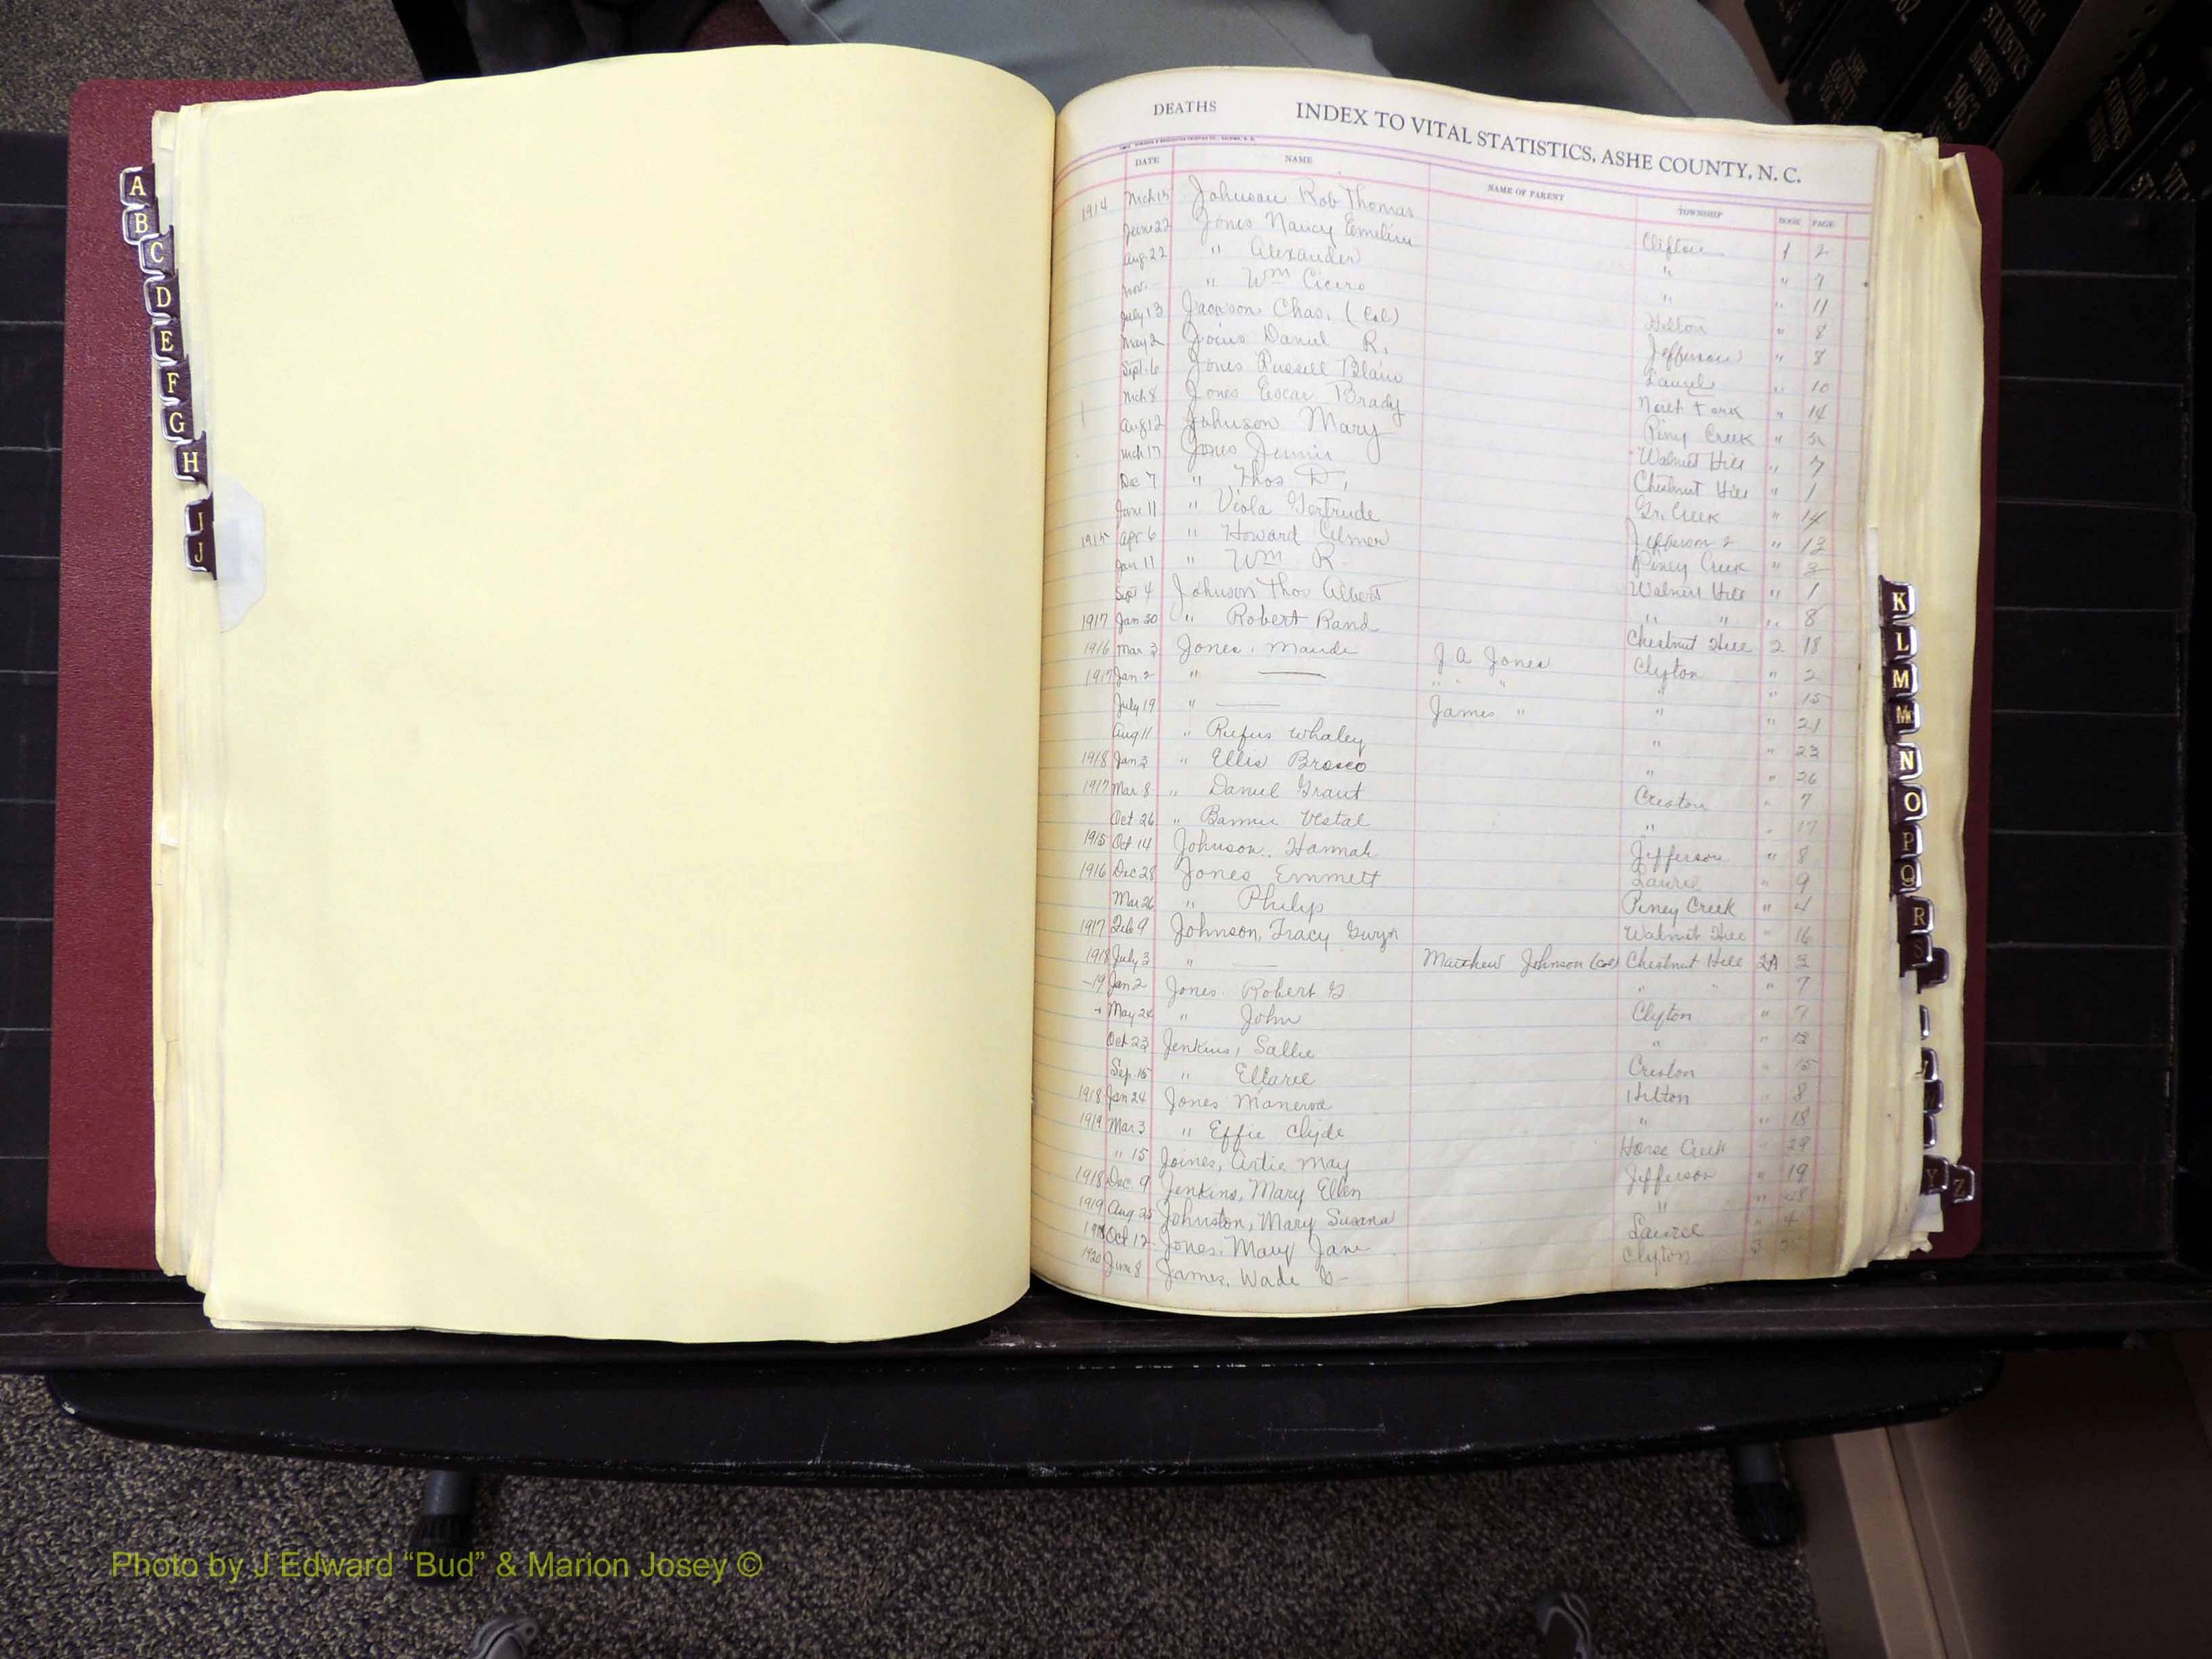 DEATHS INDEX TO VITAL STATISTICS, ASHE COUNTY, N. C.
DATE NAME NAME OF PARENT TOWNSHIP BOOK PAGE
1914 Mch 15 Johnson Rob Thomas Clifton 1 2
June 22 Jones Nancy Emeline " " 7
Aug. 22 " Alexander " " 11
Nov. - " Wm Cicero Helton " 8
July 13 Jackson Chas. (Col) Jefferson " 8
May 2 Joins Daniel R. Laurel " 10
Sept. 6 Jones Russell Blain North Fork " 14
Mch 8 Jones Escar Brady Piny Creek "
Aug 12 Johnson Mary Walnut Hill " 7
Mch 17 Jones Jennie Chestnut Hill " 1
Dec 7 " Thos D. Gr. Creek " 14
June 11 " Viola Gertrude Jefferson 2 " 13
1915 Apr. 6 " Howard Elmer Piney Creek " 3
Jan 11 " Wm R. Walnut Hill " 1
Sept 4 Johnson Thos Albert " " " 8
1917 Jan 30 " Robert Rand Chestnut Hill 2 18
1916 Mar 3 Jones, Maude J A Jones Clifton " 2
1917 Jan 2 " — " " " " " 15
July 19 " — James " " " 21
Aug 11 " Rufus Whaley " " 23
1918 Jan 3 " Ellis Brosco " " 26
1917 Mar 8 " Daniel Grant Creston " 7
Oct 26 " Bannie Vestal " " 17
1915 Oct 14 Johnson, Hannah Jefferson " 8
1916 Dec 28 Jones Emmett Laurel " 9
Mar 26 " Philip Piney Creek " 4
1917 Feb 9 Johnson, Tracy Gwyn Walnut Hill " 16
1918 July 3 " — Matthew Johnson (Col) Chestnut Hill 2A 3
-19 Jan 2 Jones Robert G " " " 7
May 24 " John Clifton " 7
Oct 23 Jenkins, Sallie " " 13
Sep. 15 " Ellaree Creston " 15
1918 Jan 24 Jones Manerva Helton " 8
1919 Mar 3 " Effie Clyde " " 18
" 15 Joines, Artie May Horse Creek " 29
1918 Dec. 9 Jenkins, Mary Ellen Jefferson " 19
1919 Aug 25 Johnston, Mary Susana " " 48
Oct 12 Jones, Mary Jane Laurel " 4
1920 June 8 James, Wade G- Clifton 3
A
B
C
D
E
F
G
H
I
J
K
L
M
Mc
N
O
P
Q
R
S
Y
Z
VITAL STATISTICS BIRTHS 1963
Photo by J Edward “Bud” & Marion Josey ©